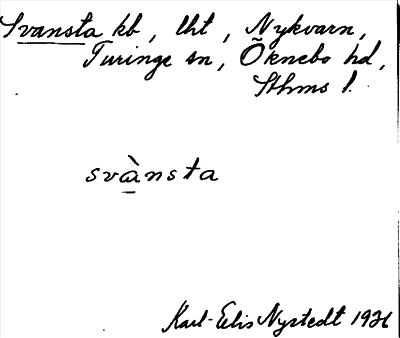 Svansta kb, lht, Nykvarn,
Turinge sn, Öknebo hd,
Sthms l.
svànsta
Karl-Elis Nystedt 1936